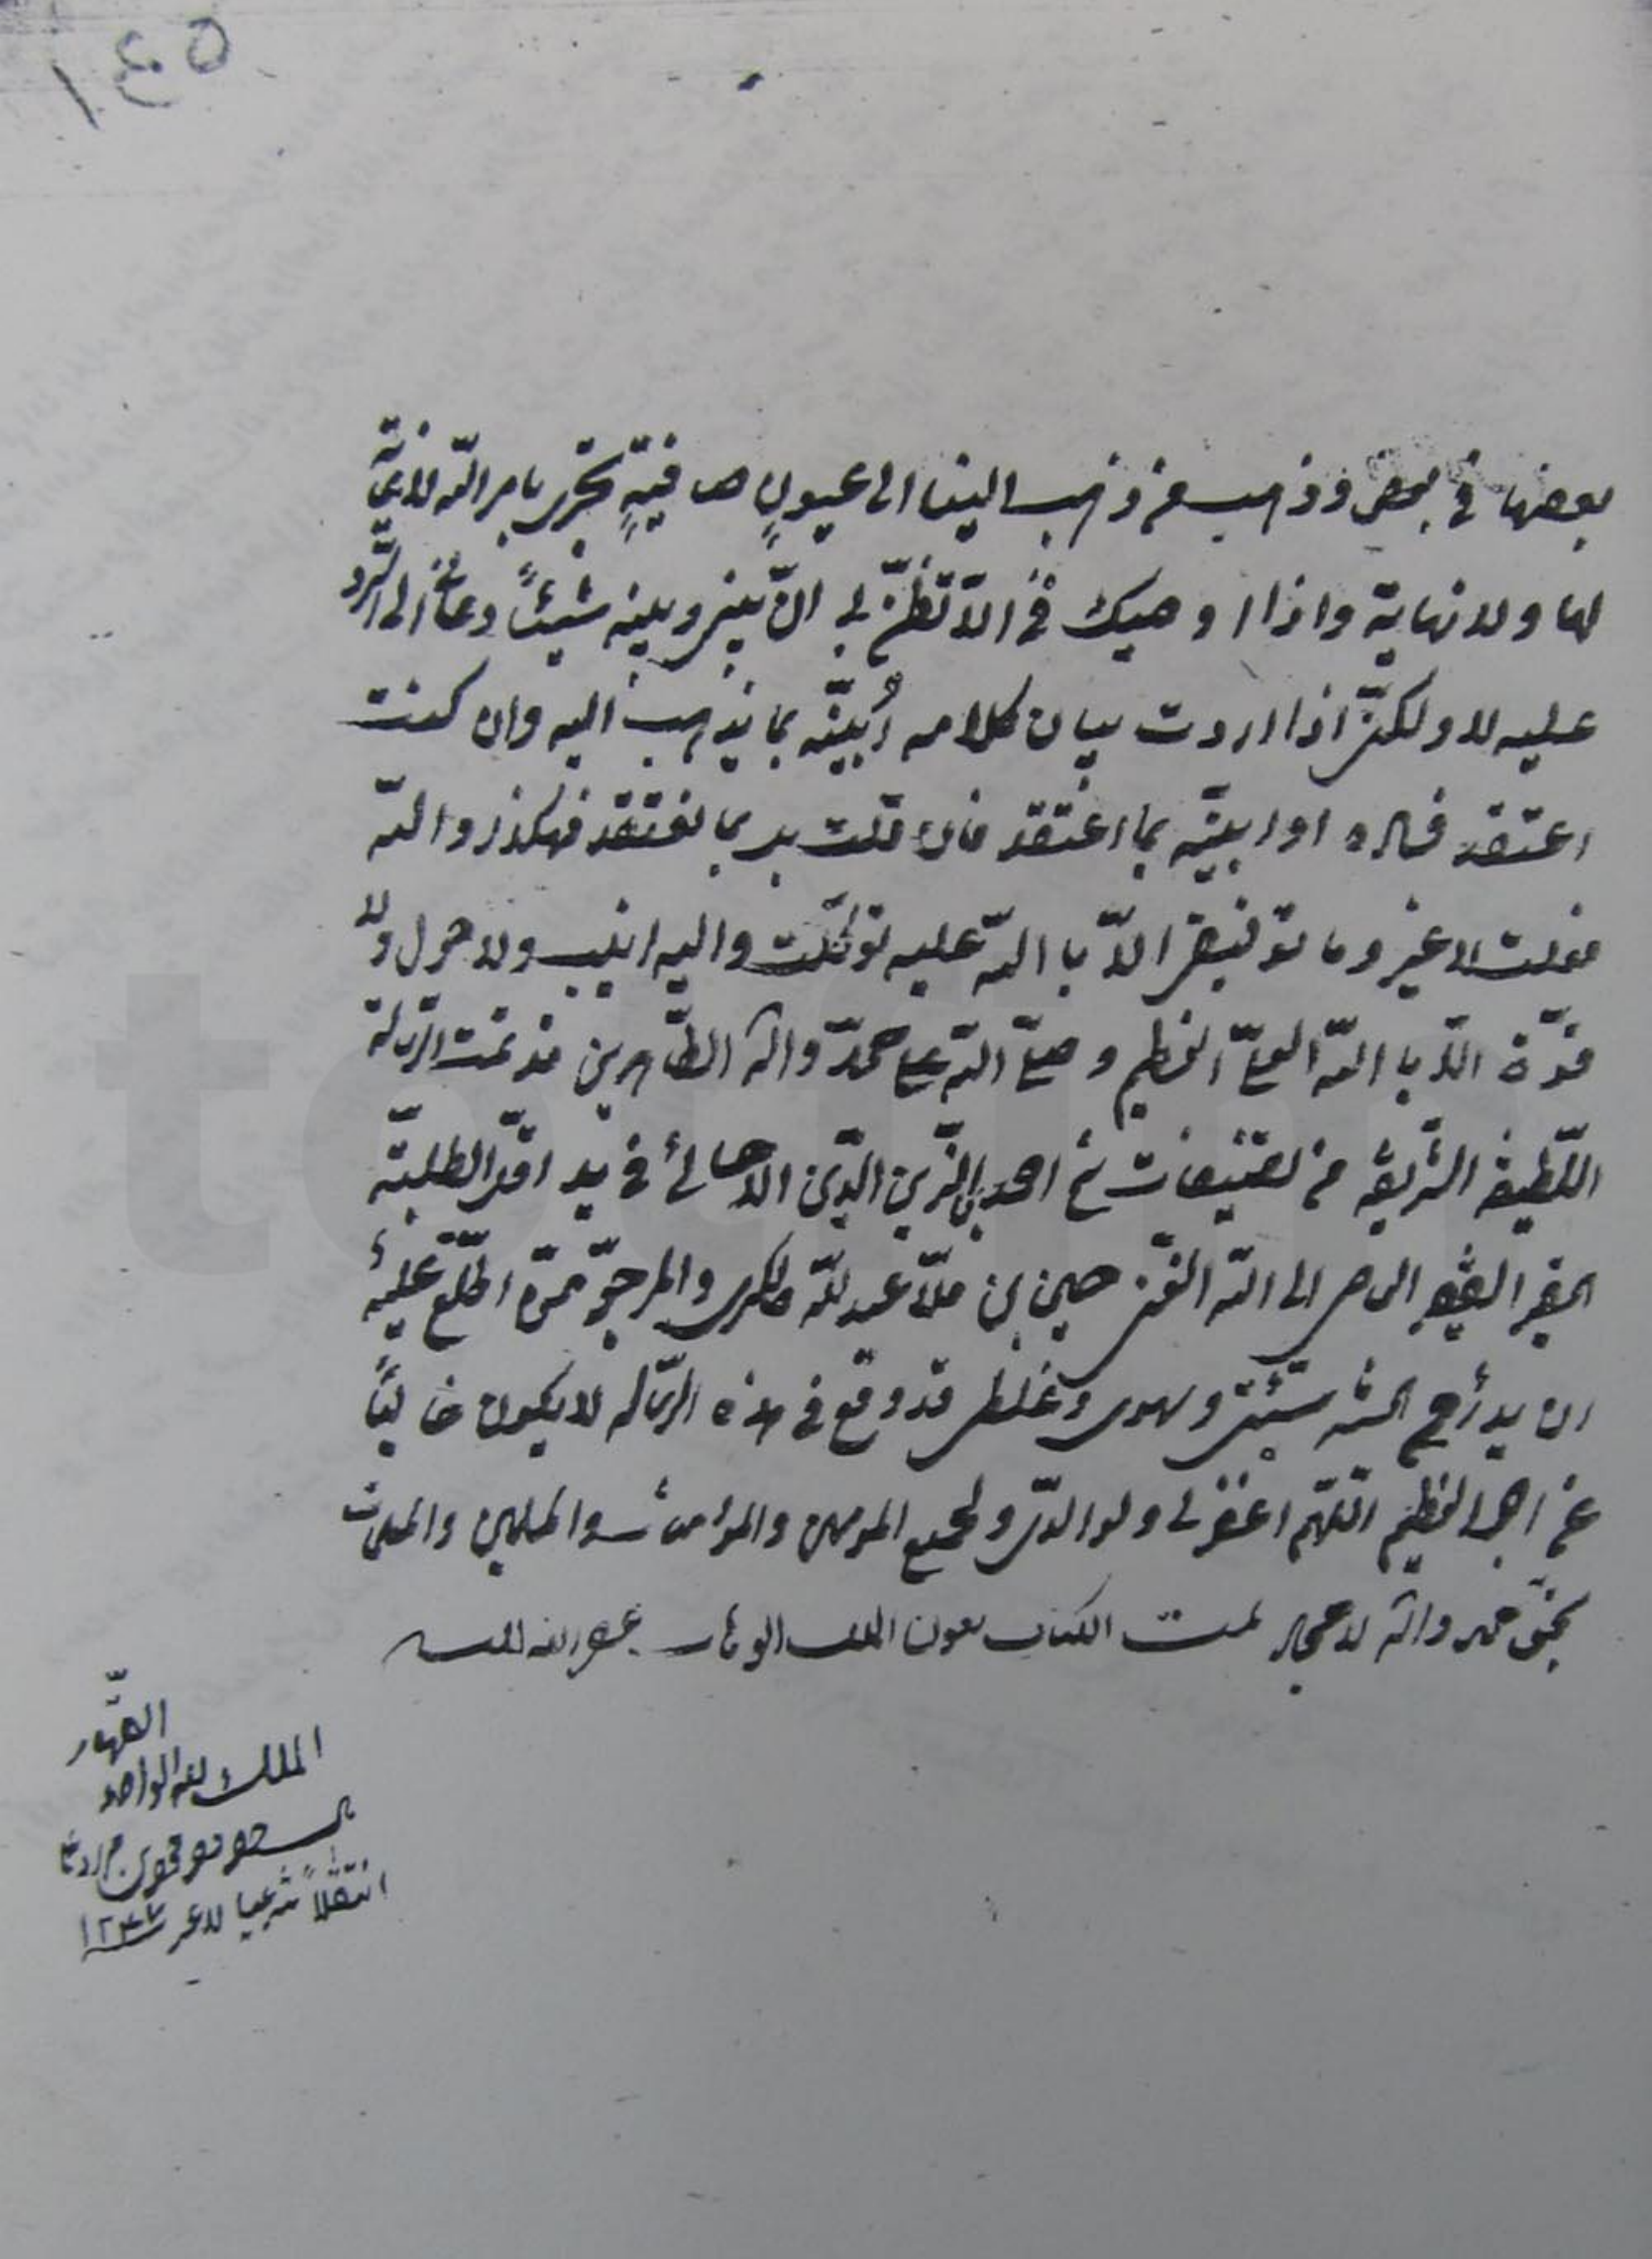 بعضها فى بعض وذهب من ذهب الينا الى عيونٍ صافيةٍ تجرى بامر الله لا غاية
لها ولا نهاية واذا اوصيك فى الّا تظنّ بى انّ بينى وبينه شيئاً دعانى الى الرّد
عليه لا ولكنّى اذا اردت بيان كلامه اُبيّنه بما يذهب اليه وان كنت
اعتقد فساده او ابيّنه بما اعتقد فان قلت بل بما نعتقد فهكذا والله
فعلت لا غير وما توفيقى الّا باالله عليه توكّلت واليه انيب ولا حول ولا
قوّة الّا باالله العلىّ العظيم وصلّى الله على محمّد وآله الطّاهرين قد تمت الرسالة
اللّطيفه الشّريفه من تصنيفات شيخ احمد بن الزّين الدّين الاحسائى فى يد اقلّ الطلبته
الحقير الفقير الى الله الغنى حسين بن ملّا عبدلله والمرجوّ ممّن اطّلع عليه
ان وغلط قد وقع فى هذه الرساله لا يكون خالياً
عن اجر العظيم اللّهم اغفر لى ولوالدىّ ولجميع المومنين والمؤمنات والمسلمين والمسلمات
بحقّ محمد وآله الامجاد تمت الكتاب بعون الملك الوهاب
القهّار
الملك لله الواحد
انتقلاً شرعيا
١٣٥